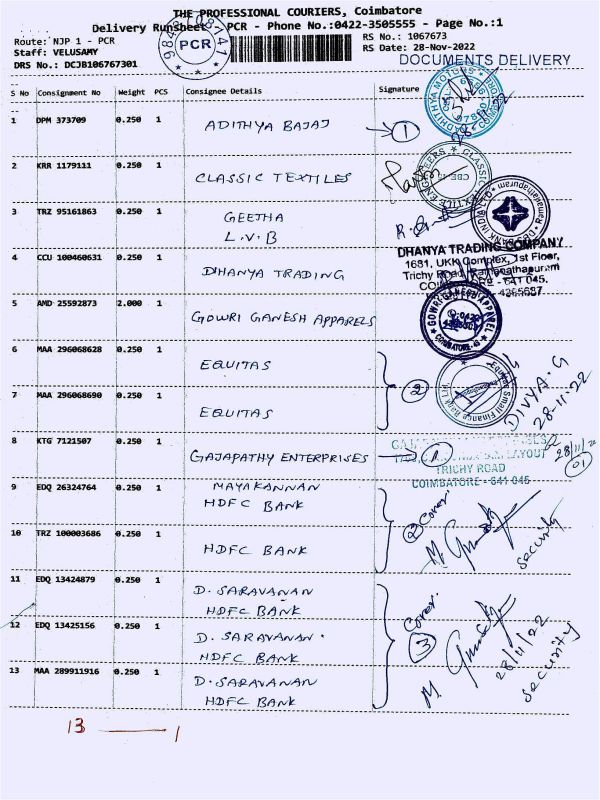 THE PROFESSIONAL COURIERS, Coimbatore
Delivery Runsheet - PCR - Phone No.:0422-3505555 - Page No.:1
Route: NJP 1 - PCR
Staff: VELUSAMY
DRS No.: DCJB106767301
PCR
RS No.: 1067673
RS Date: 28-Nov-2022
DOCUMENTS DELIVERY
S No Consignment No Weight PCS Consignee Details Signature
1 DPM 373709 0.250 1 ADITHYA BAJAJ 1
28-11-22
2 KRR 1179111 0.250 1 CLASSIC TEXTILES
3 TRZ 95161863 0.250 1 GEETHA
L.V.B
4 CCU 100460631 0.250 1 DHANYA TRADING
DHANYA TRADING COMPANY
1681, UKK Complex, 1st Floor,
Trichy Road, Ramanathapuram
COIMBATORE - 641 045.
5 AMD 25592873 2.000 1 GOWRI GANESH APPARELS
GOWRI GANESH APPAREL
COIMBATORE-45
6 MAA 296068628 0.250 1 EQUITAS
2
Equitas Small Finance Bank Ltd
DIVYA.G
28-11-22
7 MAA 296068690 0.250 1 EQUITAS
8 KTG 7121507 0.250 1 GAJAPATHY ENTERPRISES 1
LAYOUT
TRICHY ROAD
COIMBATORE - 641 045
28/11/22
01
9 EDQ 26324764 0.250 1 MAYAKANNAN
HDFC BANK
2 Cover
security
10 TRZ 100003686 0.250 1 HDFC BANK
11 EDQ 13424879 0.250 1 D. SARAVANAN
HDFC BANK
Cover
3
28/11/22
security
12 EDQ 13425156 0.250 1 D. SARAVANAN
HDFC BANK
13 MAA 289911916 0.250 1 D. SARAVANAN
HDFC BANK
13 — 1